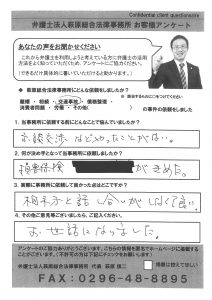 Confidential client questionnaire
弁護士法人萩原総合法律事務所 お客様アンケート
あなたの声をお聞かせください
これから弁護士を利用しようと考えている方に弁護士の活用
方法をよく知っていただくため、アンケートにご協力ください。
(できるだけ具体的に書いていただけると助かります。)
◆ 萩原総合法律事務所にどんな依頼をしましたか?
離婚 ・ 相続 ・ 交通事故 ・ 債務整理 ・
消費者問題 ・ 労働 ・ その他( )の事件の依頼をした
1. 当事務所に依頼する前にどんなことで悩んでいましたか?
示談交渉はどやったことがない。
2. 何が決め手となって当事務所に依頼しましたか?
損害保険 がきめた。
3. 実際に事務所に依頼して良かった点はどこですか?
相手方と話し合いがしなくて良い。
4. その他ご意見等ございましたら、ご記入ください。
お世話になりました。
アンケートのご協力ありがとうございます。こちらの情報を匿名でホームページに掲載する
ことがございます。(不許可の方は下記にチェックをお願いします)
弁護士法人萩原総合法律事務所 代表 萩原 慎二 □ 掲載は控えてほしい
FAX:0296-48-8895